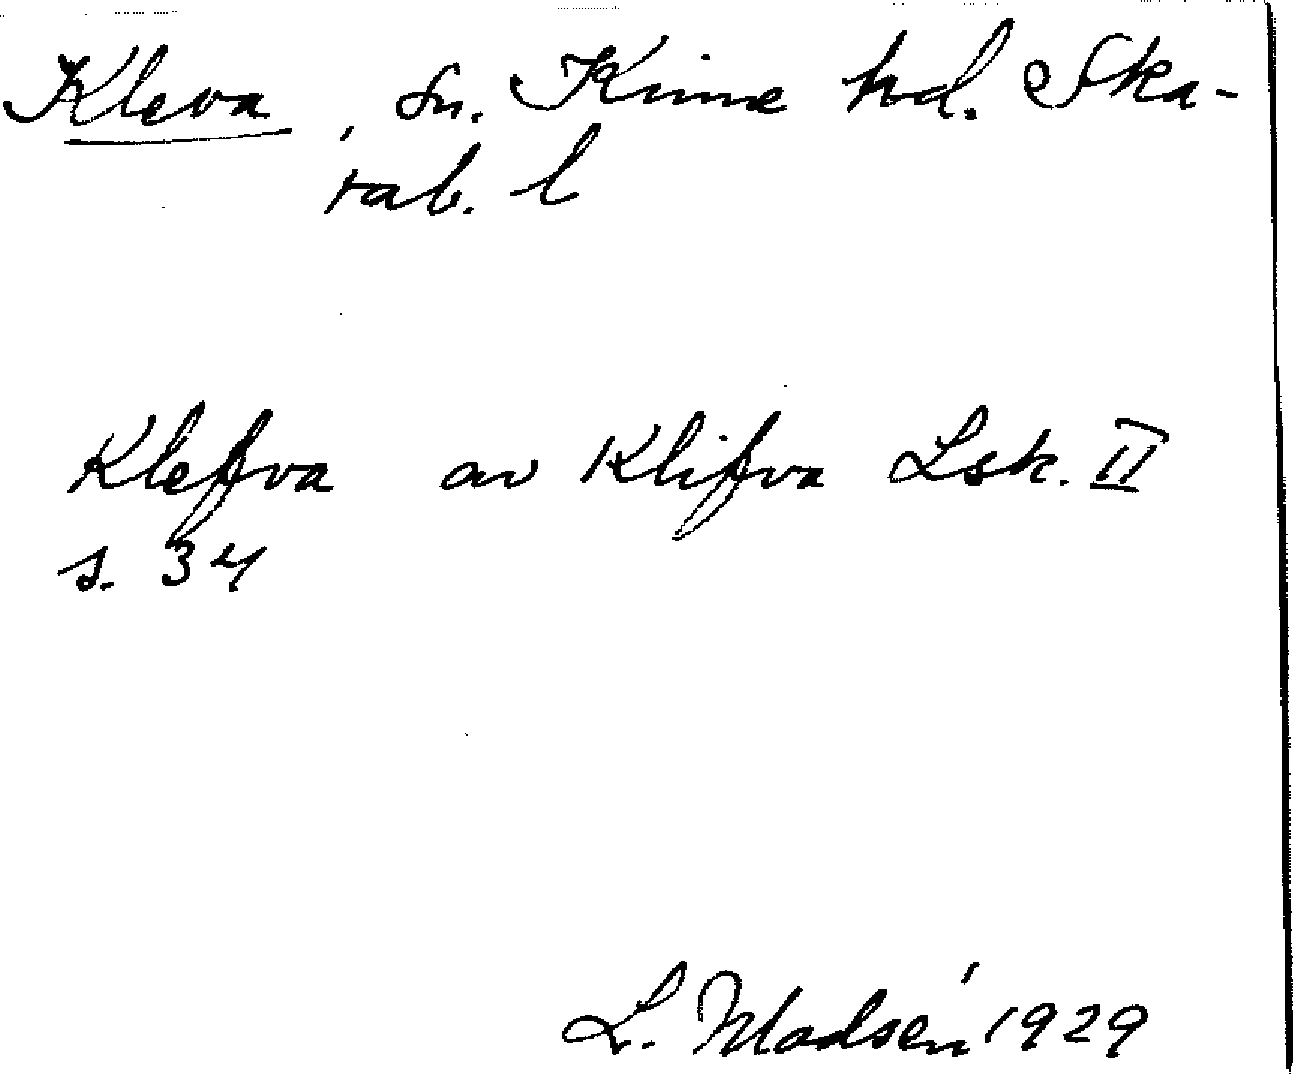 Kleva, sn. Kinne hd. Ska-
rab. l
Klefva av Klifva Lsk. II
s. 34
L. Madsén 1929